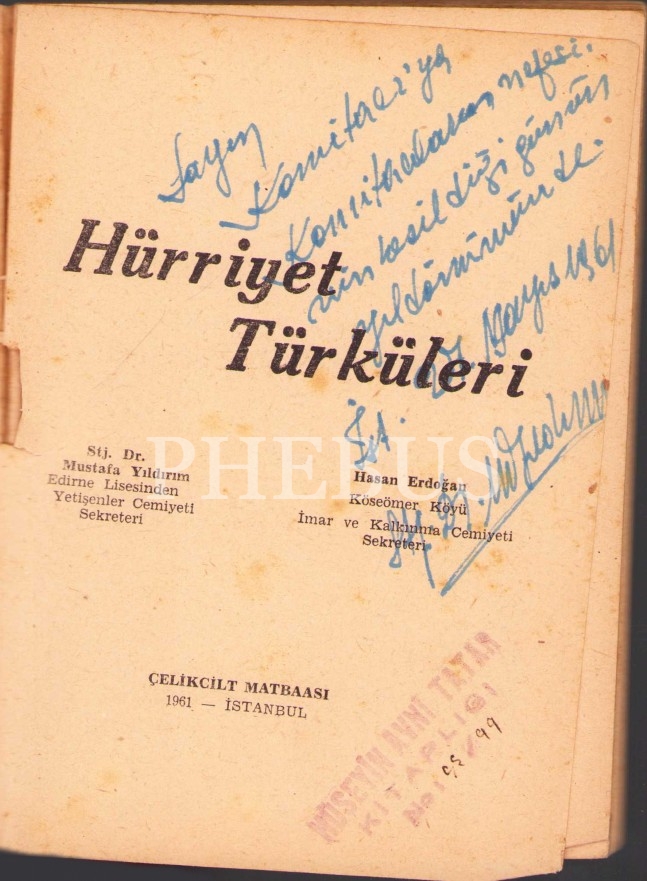 Sayın
Komitacı'ya
Komitacıların nefesi-
nin kesildiği günün
yıldönümünde.
Hürriyet
Türküleri
İst. 27 Mayıs 1961
Stj. Dr.
Mustafa Yıldırım
Edirne Lisesinden
Yetişenler Cemiyeti
Sekreteri
Hasan Erdoğan
Köseömer Köyü
İmar ve Kalkınma Cemiyeti
Sekreteri
Stj. Dr. M. Yıldırım
PHEBUS
ÇELİKCİLT MATBAASI
1961 — İSTANBUL
HÜSEYİN AVNİ TATAR
KİTAPLIĞI
No: